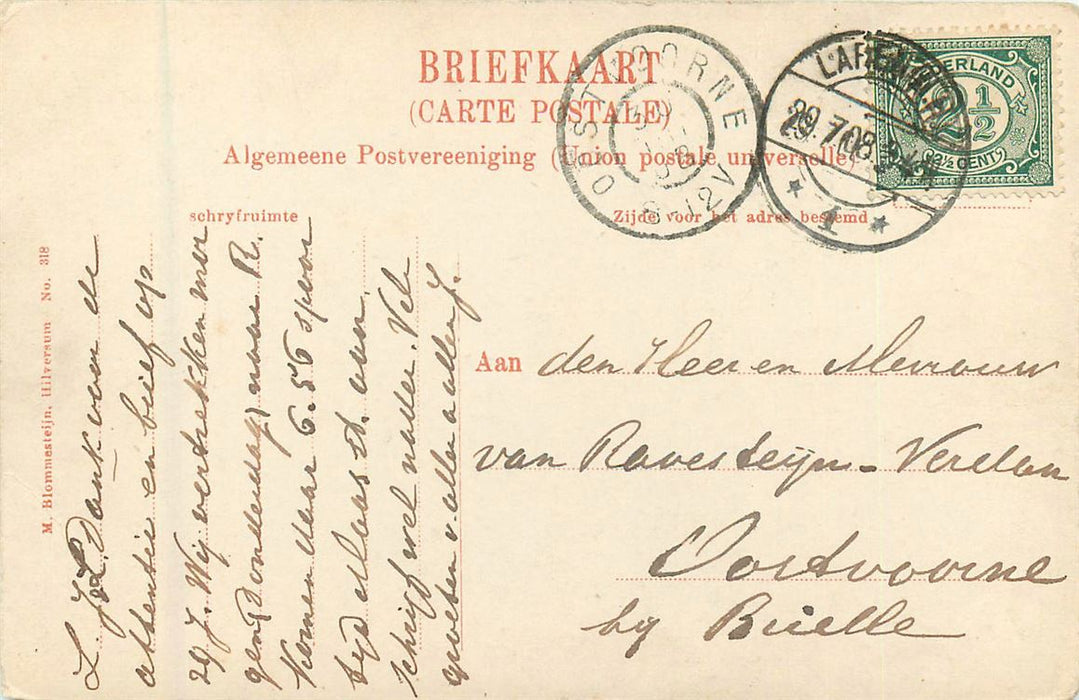 BRIEFKAART
(CARTE POSTALE)
Algemeene Postvereeniging (Union postale universelle)
schryfruimte
Zijde voor het adres bestemd
OOSTVOORNE
8 12V
LAREN
29.7.08
1
NEDERLAND
2 1/2
2½ CENT
M. Blommesteijn, Hilversum No. 318
Dank voor de
attentie en brief op
29 J. Wij vertrekken mor
gen Donderdag naar R.
Komen daar 6.56 spoor
tijd Maas st. aan
schrijf wel nader. Vele
groeten v. allen a allen J.
Aan den Heer en Mevrouw
van Ravesteyn - Verdam
Oostvoorne
by Brielle